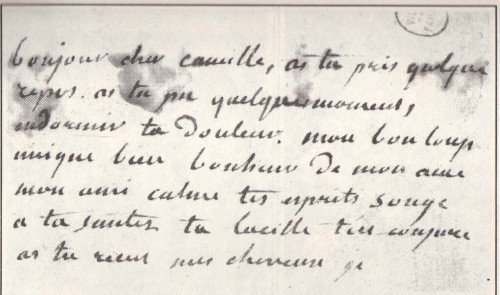 bonjour cher camille, as tu pris quelque
repos. as tu pu quelques moment,
endormir ta douleur. mon bon loup
unique bien bonheur de mon ame
mon ami calme tes esprits songe
a ta santes ta lucille t'en conjure
as tu recus mes cheveux je